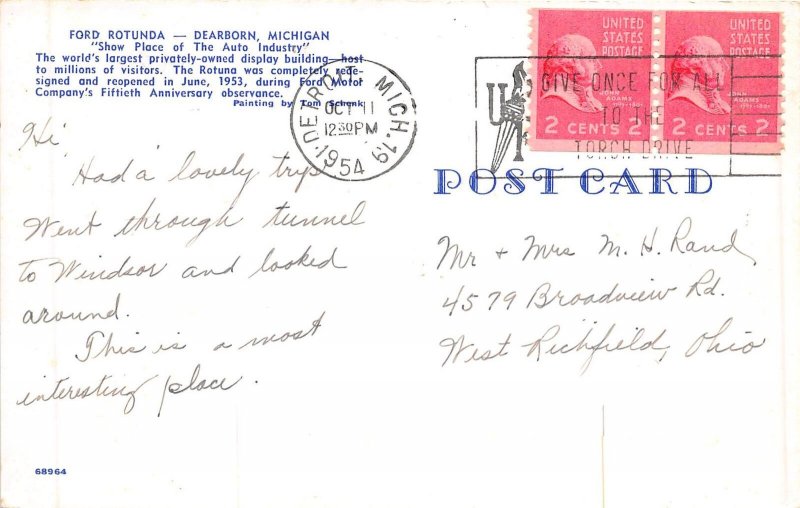 FORD ROTUNDA — DEARBORN, MICHIGAN
"Show Place of The Auto Industry"
The world's largest privately-owned display building—host
to millions of visitors. The Rotuna was completely rede-
signed and reopened in June, 1953, during Ford Motor
Company's Fiftieth Anniversary observance.
Painting by Tom Schenk
DETROIT MICH. 19
OCT 11
12 30 PM
1954
GIVE ONCE FOR ALL
TO THE
TORCH DRIVE
UNITED
STATES
POSTAGE
JOHN
ADAMS
2 CENTS 2
UNITED
STATES
POSTAGE
JOHN
ADAMS
2 CENTS 2
POST CARD
Hi
Had a lovely trip
Went through tunnel
to Windsor and looked
around.
This is a most
interesting place.
Mr + Mrs M. H. Rand,
4579 Broadview Rd.
West Richfield, Ohio
68964